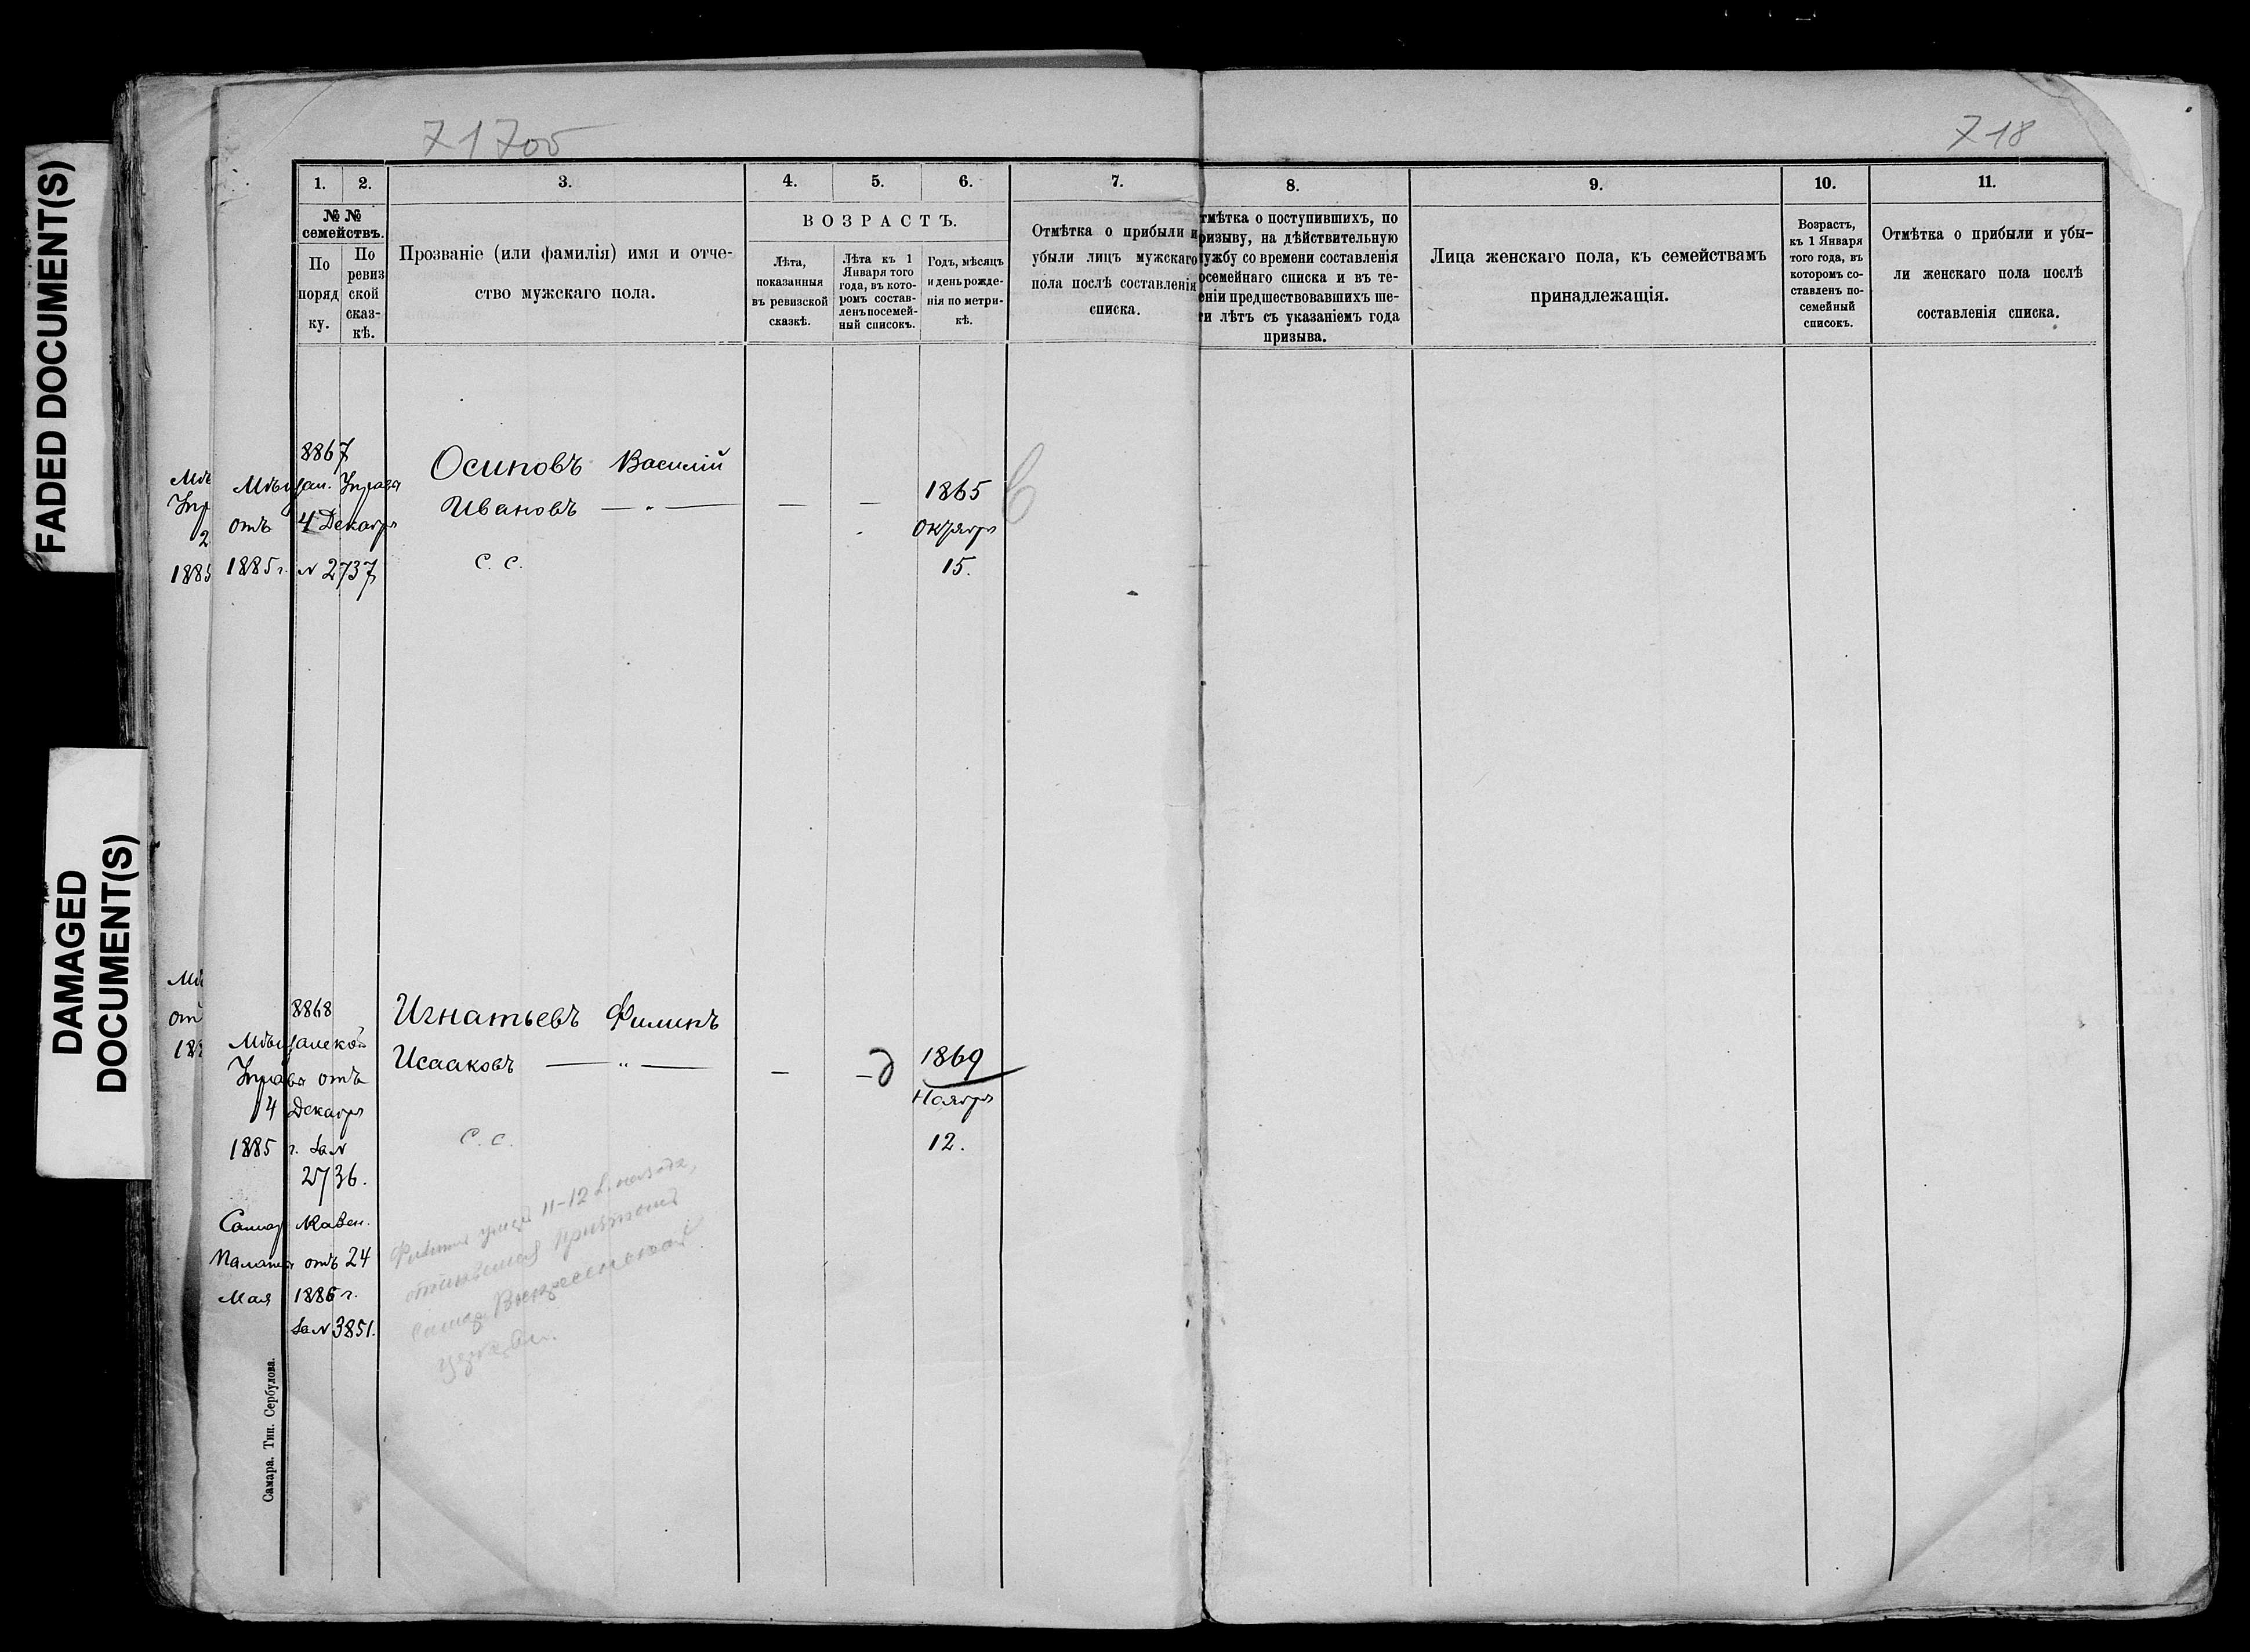 FADED DOCUMENT(S)
DAMAGED
DOCUMENT(S)
717об
718
1.
2.
3.
4.
5.
6.
7.
8.
9.
10.
11.
№ №
семействъ.
По
поряд
ку.
По
ревиз
ской
сказ-
кѣ.
Прозваніе (или фамилія) имя и отче-
ство мужскаго пола.
ВОЗРАСТЪ.
Лѣта,
показанныя
въ ревизской
сказкѣ.
Лѣта къ 1
Января того
года, въ кото-
ромъ состав-
ленъ посемей-
ный списокъ.
Годъ, мѣсяцъ
и день рожде-
нія по метри-
кѣ.
Отмѣтка о прибыли и
убыли лицъ мужскаго
пола послѣ составленія
списка.
тмѣтка о поступившихъ, по
ризыву, на дѣйствительную
ужбу со времени составленія
осемейнаго списка и въ те-
еніи предшествовавшихъ ше-
ти лѣтъ съ указаніемъ года
призыва.
Лица женскаго пола, къ семействамъ
принадлежащія.
Возрастъ,
къ 1 Января
того года, въ
которомъ со-
ставленъ по-
семейный
списокъ.
Отмѣтка о прибыли и убы-
ли женскаго пола послѣ
составленія списка.
8867
Мѣщан. Управы
отъ 4 Декабря
1885 г. № 2737
Осиповъ Василій
Ивановъ — „ —
С. С.
— —
1865
Октября
15.
8868
Мѣщанской
Управы отъ
4 Декабря
1885 г. за №
2736.
Самар. Казен.
Палаты отъ 24
Мая 1886 г.
за № 3851.
Игнатьевъ Филипъ
Исааковъ — „ —
С. С.
— —
1869
Ноября
12.
11-12
Воскресенской
церкви.
Самара. Тип. Сербулова.